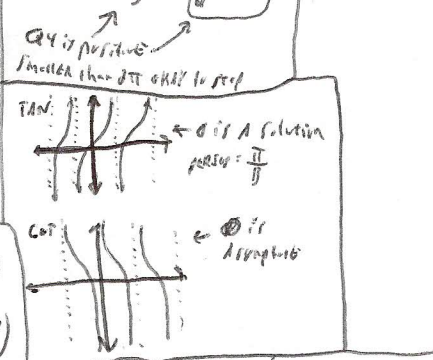 Q4 is positive
smaller than 2π okay to stop
TAN
← 0 is A solution
period = π/B
COT
← 0 is
Asymptote